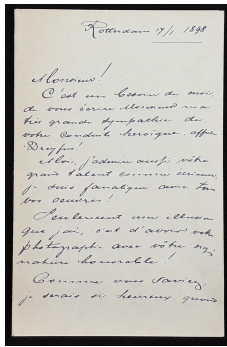 Rotterdam 17/1 1898
Monsieur!
C'est un besoin de moi,
de vous écrire Monsieur ma
très grande sympathie de
votre conduit heroïque, affaire
Dreyfus!
Moi, j'admire aussi vôtre
grand talent comme écrivain,
je suis fanatique avec tous
vos oeuvres!
Seulement une illusion
que j'ai, c'est d'avoir votre
photographie avec vôtre sig-
nature honorable!
Comme vous saviez,
je serais si heureux, quand